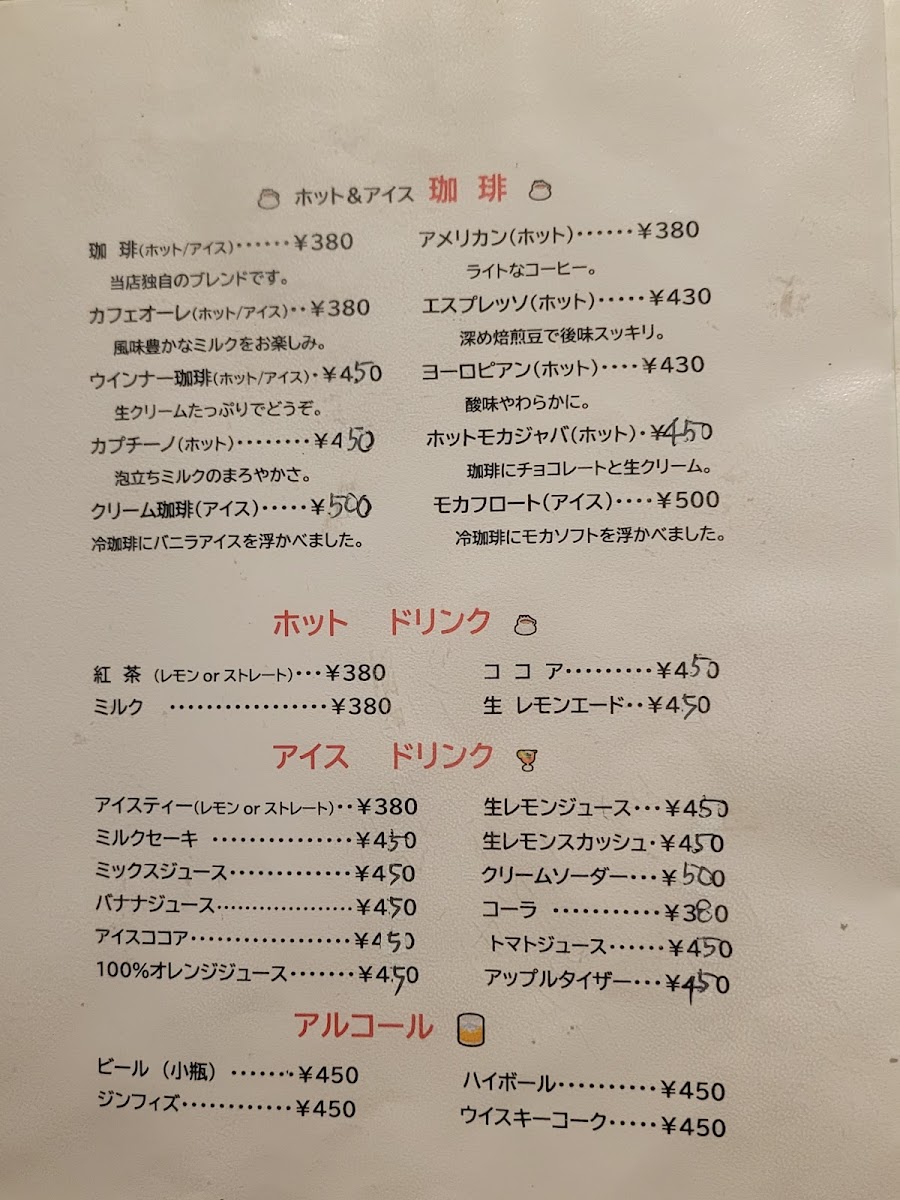 ホット&アイス 珈 琲
珈 琲(ホット/アイス)・・・・・・¥380
当店独自のブレンドです。
カフェオーレ(ホット/アイス)・・¥380
風味豊かなミルクをお楽しみ。
ウインナー珈琲(ホット/アイス)・¥450
生クリームたっぷりでどうぞ。
カプチーノ(ホット)・・・・・・・・¥450
泡立ちミルクのまろやかさ。
クリーム珈琲(アイス)・・・・・¥500
冷珈琲にバニラアイスを浮かべました。
アメリカン(ホット)・・・・・・¥380
ライトなコーヒー。
エスプレッソ(ホット)・・・・・¥430
深め焙煎豆で後味スッキリ。
ヨーロピアン(ホット)・・・・¥430
酸味やわらかに。
ホットモカジャバ(ホット)・¥450
珈琲にチョコレートと生クリーム。
モカフロート(アイス)・・・・¥500
冷珈琲にモカソフトを浮かべました。
ホット ドリンク
紅 茶 (レモン or ストレート)・・・¥380
ミルク ・・・・・・・・・・・・・・・・・¥380
コ コ ア・・・・・・・・・¥450
生 レモンエード・・¥450
アイス ドリンク
アイスティー(レモン or ストレート)・・¥380
ミルクセーキ ・・・・・・・・・・・・・・・¥450
ミックスジュース・・・・・・・・・・・・・¥450
バナナジュース・・・・・・・・・・・・・・・・・・・・¥450
アイスココア・・・・・・・・・・・・・・・・・¥450
100%オレンジジュース・・・・・・・¥450
生レモンジュース・・・¥450
生レモンスカッシュ・¥450
クリームソーダー・・・¥500
コーラ ・・・・・・・・・・・¥380
トマトジュース・・・・・・¥450
アップルタイザー・・・¥450
アルコール
ビール (小瓶) ・・・・・・・¥450
ジンフィズ・・・・・・・・・・・・¥450
ハイボール・・・・・・・・・・¥450
ウイスキーコーク・・・・・¥450